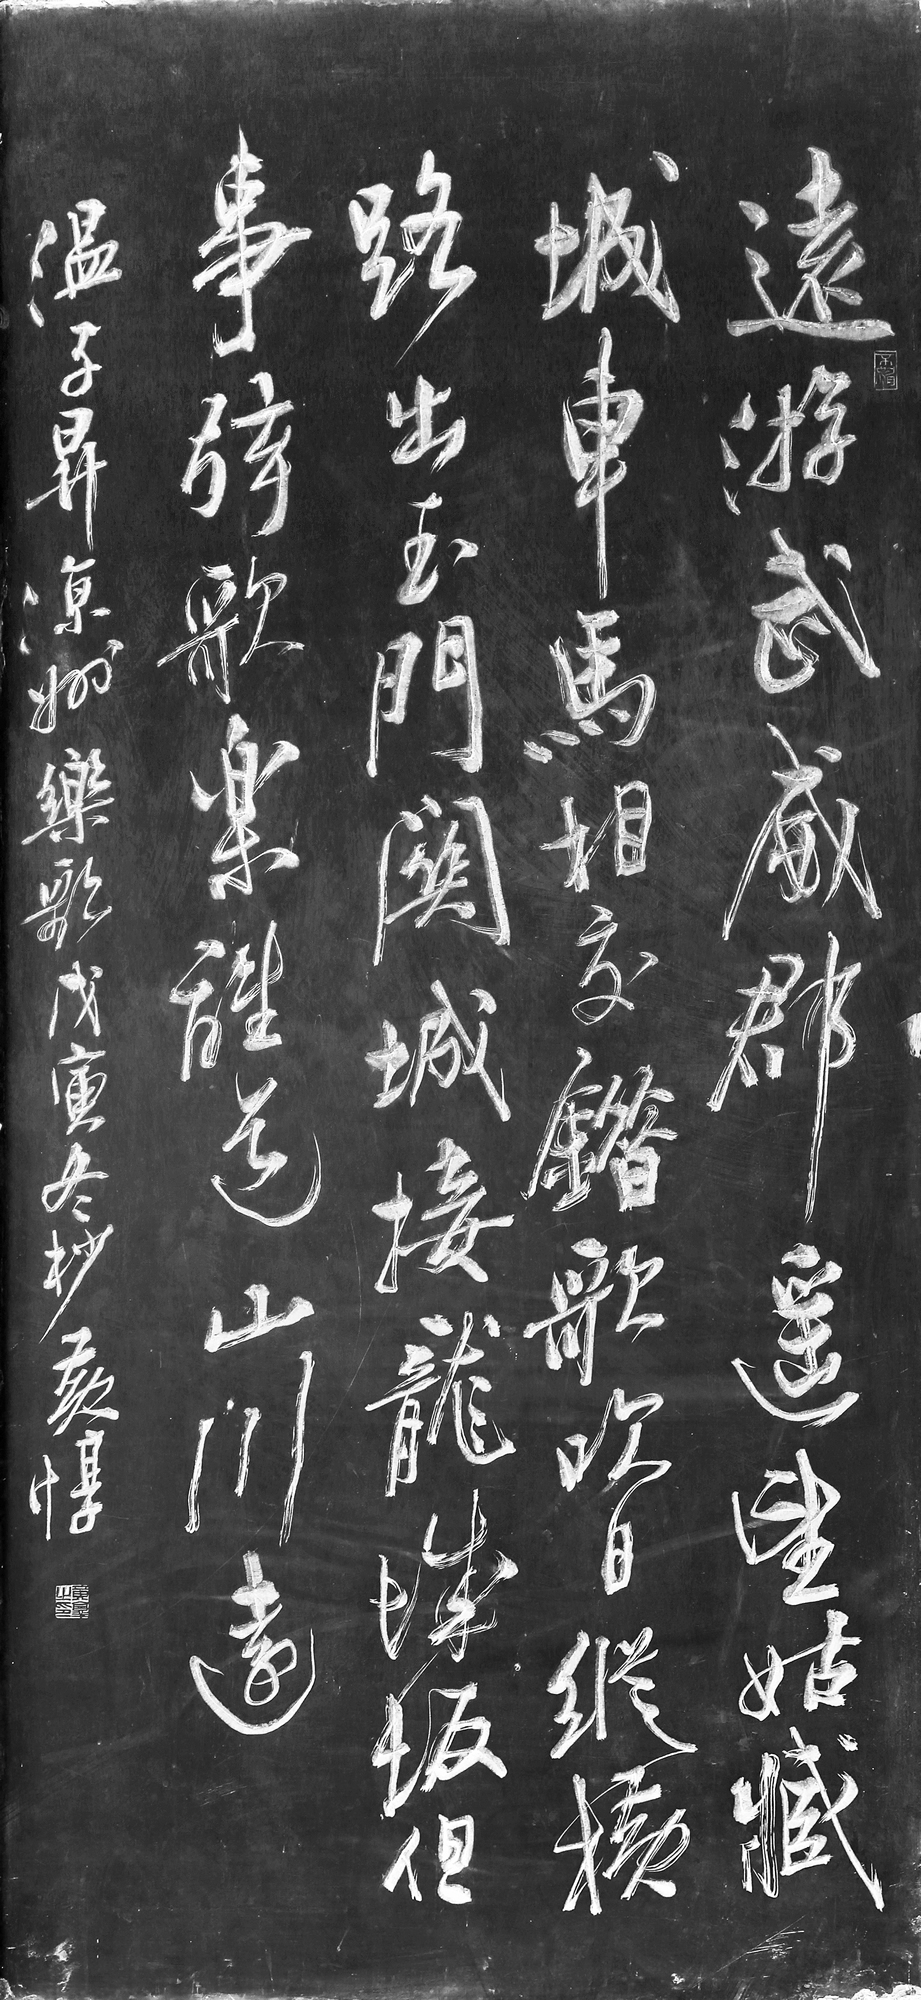 遠游武威郡遥望姑臧
城車馬相交錯歌吹日縱橫
路出玉門關城接龍城坂但
事弦歌樂誰道山川遠
温子昇涼州樂歌戊寅冬杪黄惇